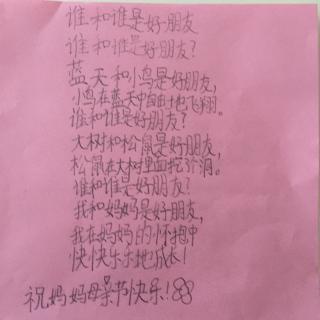 谁和谁是好朋友
谁和谁是好朋友?
蓝天和小鸟是好朋友,
小鸟在蓝天中自由地飞翔。
谁和谁是好朋友?
大树和松鼠是好朋友,
松鼠在大树里面挖个洞。
谁和谁是好朋友?
我和妈妈是好朋友,
我在妈妈的怀抱中
快快乐乐地成长!
祝妈妈母亲节快乐!